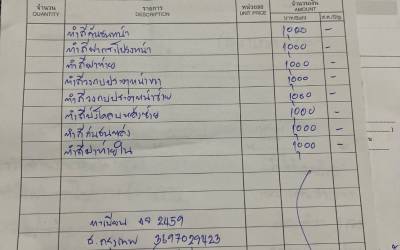 จำนวน รายการ หน่วยละ จำนวนเงิน
QUANTITY DESCRIPTION UNIT PRICE AMOUNT
ทำสีกันชนหน้า 1000 -
ทำสีฝากระโปรงหน้า 1000 -
ทำสีฝาท้าย 1000 -
ทำสีวงกบประตูหน้าขวา 1000 -
ทำสีวงกบประตูหน้าซ้าย 1000 -
ทำสีบังโคลนหลังซ้าย 1000 -
ทำสีกันชนหลัง 1000 -
ทำสีฝาท้ายใน 1000 -
ทะเบียน 2459
ธ.กรุงเทพ 3697029423